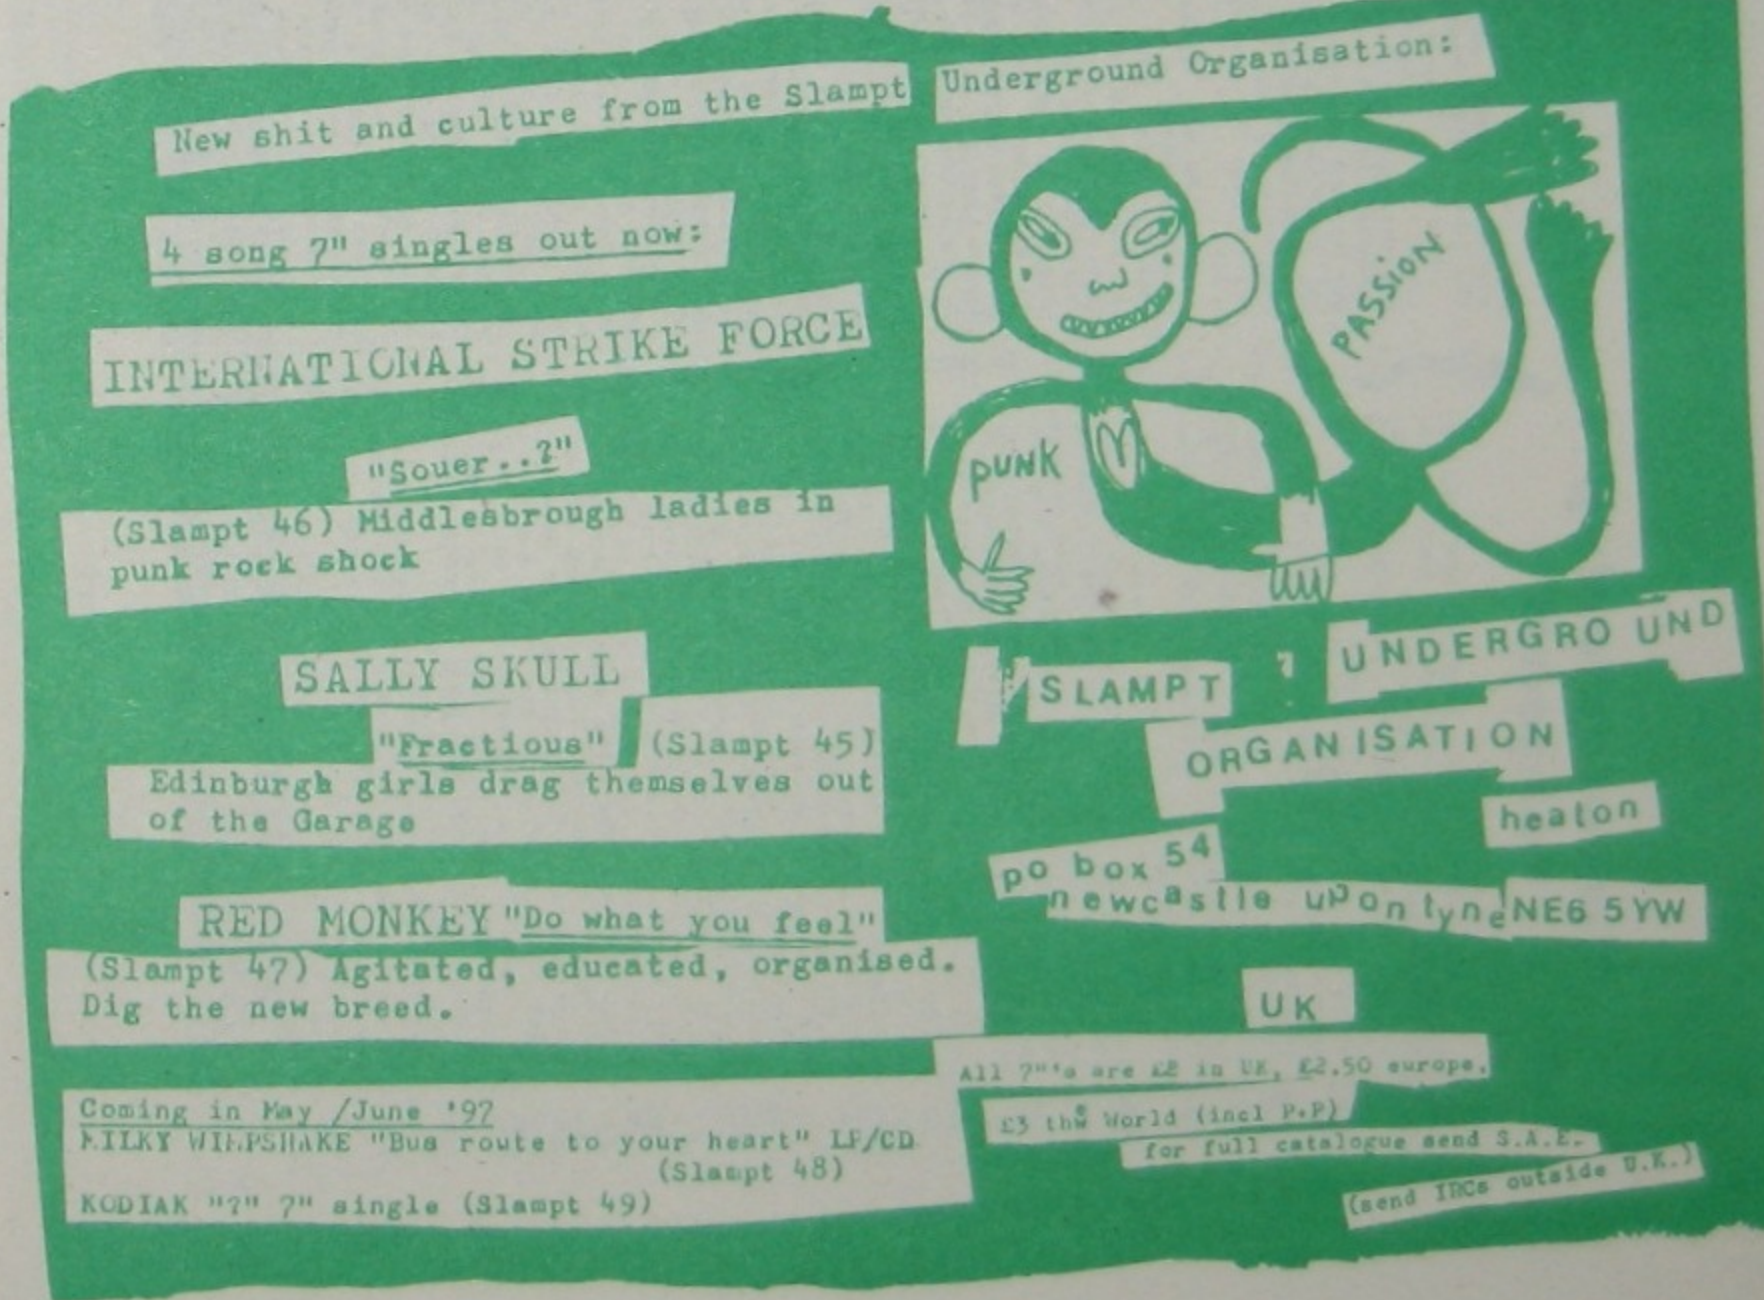 New shit and culture from the Slampt Underground Organisation:
4 song 7" singles out now:
INTERNATIONAL STRIKE FORCE
"Souer..?"
(Slampt 46) Middlesbrough ladies in
punk rock shock
SALLY SKULL
"Fractious" (Slampt 45)
Edinburgh girls drag themselves out
of the Garage
RED MONKEY "Do what you feel"
(Slampt 47) Agitated, educated, organised.
Dig the new breed.
Coming in May /June '97
MILKY WIMPSHAKE "Bus route to your heart" LP/CD
(Slampt 48)
KODIAK "?" 7" single (Slampt 49)
PUNK
PASSiON
SLAMPT UNDERGROUND
ORGANISATION
heaton
po box 54
newcastle upon tyne NE6 5YW
UK
All 7"'s are £2 in UK, £2.50 europe.
£3 the World (incl P+P)
for full catalogue send S.A.E.
(send IRCs outside U.K.)